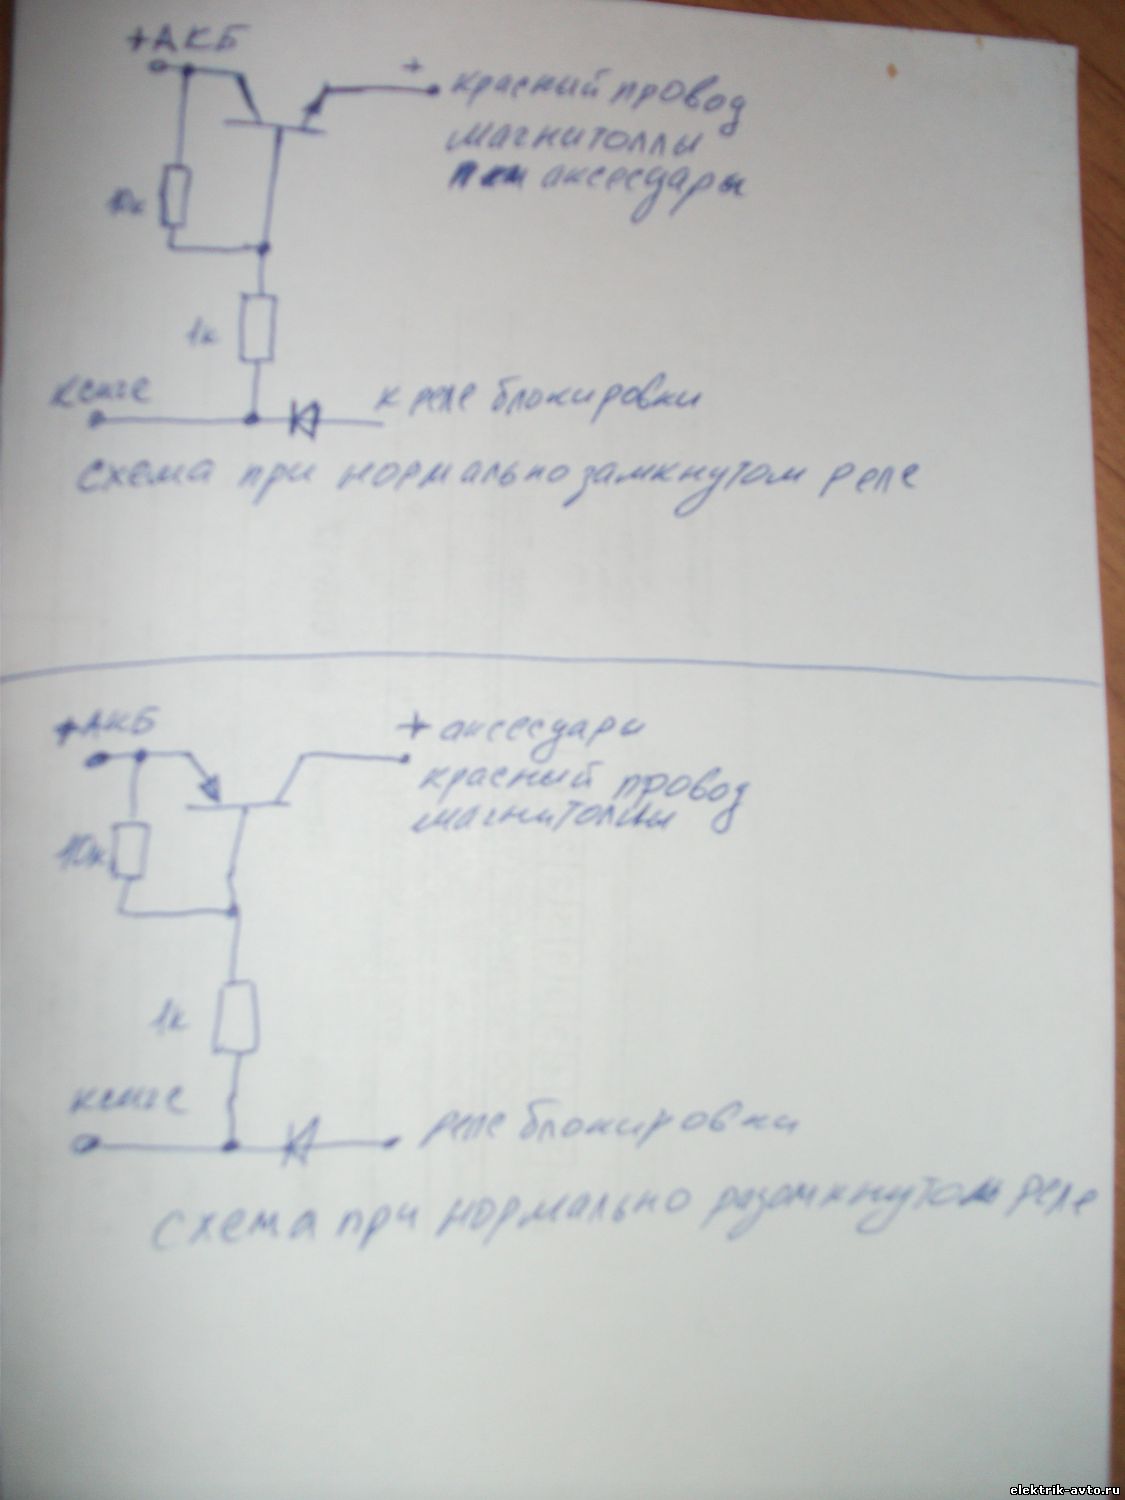 +АКБ
+ красный провод
магнитоллы
аксесуары
10к
1к
к сиге
к реле блокировки
схема при нормально замкнутом реле
+АКБ
+ аксесуары
красный провод
магнитоллы
10к
1к
к сиге
реле блокировки
схема при нормально разомкнутом реле
elektrik-avto.ru